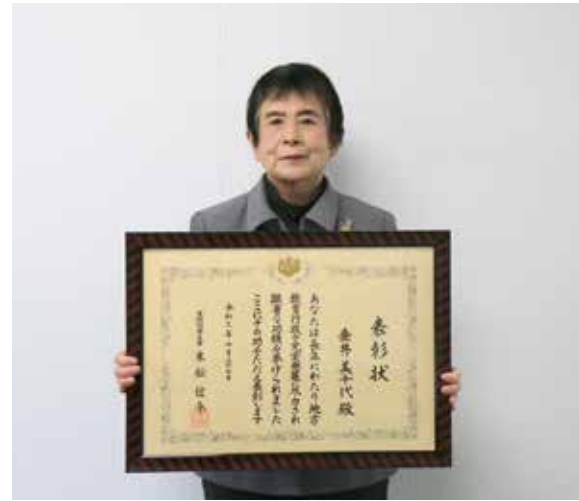 表彰状
垂井美千代殿
あなたは長年にわたり地方
教育行政の充実発展に尽力され
顕著な功績を挙げられました
ここにその功をたたえ表彰します
令和三年
末松信介